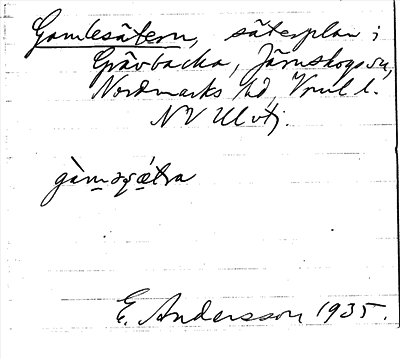 Gamlesätern, säterplan i
Grävbacka, Järnskogs sn,
Nordmarks hd, Vrml l.
NV Ulvtj.
gàmsǫ́tra
E. Andersson 1935.